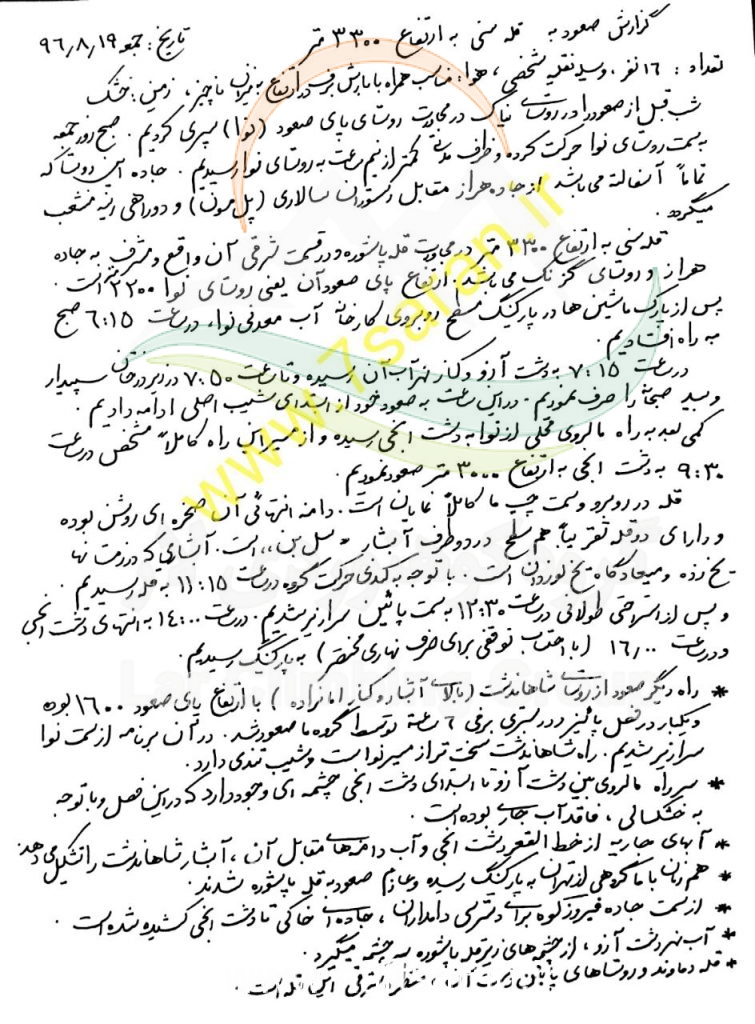 گزارش صعود به قله سنی به ارتفاع ۳۳۰۰ متر تاریخ: جمعه ۹۶٫۸٫۱۹
تعداد: ۱۶ نفر، وسیله نقلیه شخصی، هوا: مناسب همراه با بارش برف در ارتفاع به میزان ناچیز، زمین: خشک
شب قبل از صعود را در روستای نیاک در مجاورت روستای پای صعود (نوا) سپری کردیم. صبح روز جمعه
به سمت روستای نوا حرکت کرده و ظرف مدت کمتر از نیم ساعت به روستای نوا رسیدیم. جاده این روستا که
تماماً آسفالته می باشد از جاده هراز مقابل رستوران سالاری (پل مون) و دوراهی رینه منشعب
میگردد.
قله سنی به ارتفاع ۳۳۰۰ متر در مجاورت قله پاشوره و در قسمت شرقی آن واقع و مشرف به جاده
هراز و روستای گزنک می باشد. ارتفاع پای صعود آن یعنی روستای نوا ۲۲۰۰ متر است.
پس از پارک ماشین ها در پارکینگ مسطح روبروی کارخانه آب معدنی نوا، در ساعت ۶:۱۵ صبح
به راه افتادیم.
در ساعت ۷:۱۵ به دشت آزو و کنار نهر آب آن رسیده و تا ساعت ۷:۵۰ در زیر درختان سپیدار
و بید صبحانه را صرف نمودیم. در این ساعت به صعود خود از ابتدای شیب اصلی ادامه دادیم.
کمی بعد به راه مالروی محلی از نوا به دشت انجی رسیده و از مسیر این راه کاملاً مشخص در ساعت
۹:۳۰ به دشت انجی به ارتفاع ۳۰۰۰ متر صعود نمودیم.
قله در روبرو و سمت چپ ما کاملاً نمایان است. دامنه انتهائی آن صخره ای روشن بوده
و دارای دو قله تقریباً هم سطح در دو طرف آبشار "سل بن" است. آبشاری که در زمستانها
یخ زده و میعادگاه یخ نوردان است. با توجه به کندی حرکت گروه در ساعت ۱۱:۱۵ به قله رسیدیم.
و پس از استراحتی طولانی در ساعت ۱۲:۳۰ به سمت پائین سرازیر شدیم. در ساعت ۱۴:۰۰ به انتهای دشت انجی
و در ساعت ۱۶٫۰۰ (با احتساب توقفی برای صرف نهاری مختصر) به پارکینگ رسیدیم.
* راه دیگر صعود از روستای شاهاندشت (بالای آبشار و کنار امامزاده) با ارتفاع پای صعود ۱۶۰۰ بوده
و یکبار در فصل پائیز و در بستری برفی ۶ ساعته توسط گروه ما صعود شد. در آن برنامه از سمت نوا
سرازیر شدیم. راه شاهاندشت سخت تر از مسیر نوا است و شیب تندی دارد.
* سر راه مالروی بین دشت آزو تا ابتدای دشت انجی چشمه ای وجود دارد که در این فصل و با توجه
به خشکسالی، فاقد آب جاری بوده است.
* آبهای جاریه از خط القعر دشت انجی و آب دامنه های مقابل آن، آبشار شاهاندشت را تشکیل می دهد.
* همزمان با ما گروهی از تهران به پارکینگ رسیده و عازم صعود به قله پاشوره شدند.
* از سمت جاده فیروزکوه برای دسترسی دامداران، جاده ای خاکی تا دشت انجی کشیده شده است.
* آب نهر دشت آزو، از چشمه های زیر قله پاشوره سرچشمه میگیرد.
* قله دماوند و روستاهای پایان دست آن، منظر شرقی این قله است.
www.7saran.ir